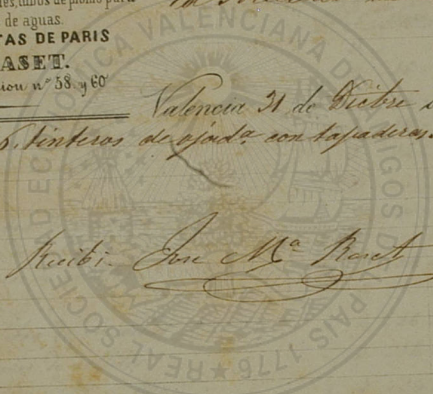 de aguas.
TAS DE PARIS
ASET.
nº 58. y 60
Valencia 31 de Dicbre
tinteros de ojada. con tapaderas.
Recibi. Jose Mª
REAL SOCIEDAD ECONOMICA VALENCIANA DE AMIGOS DEL PAIS 1776